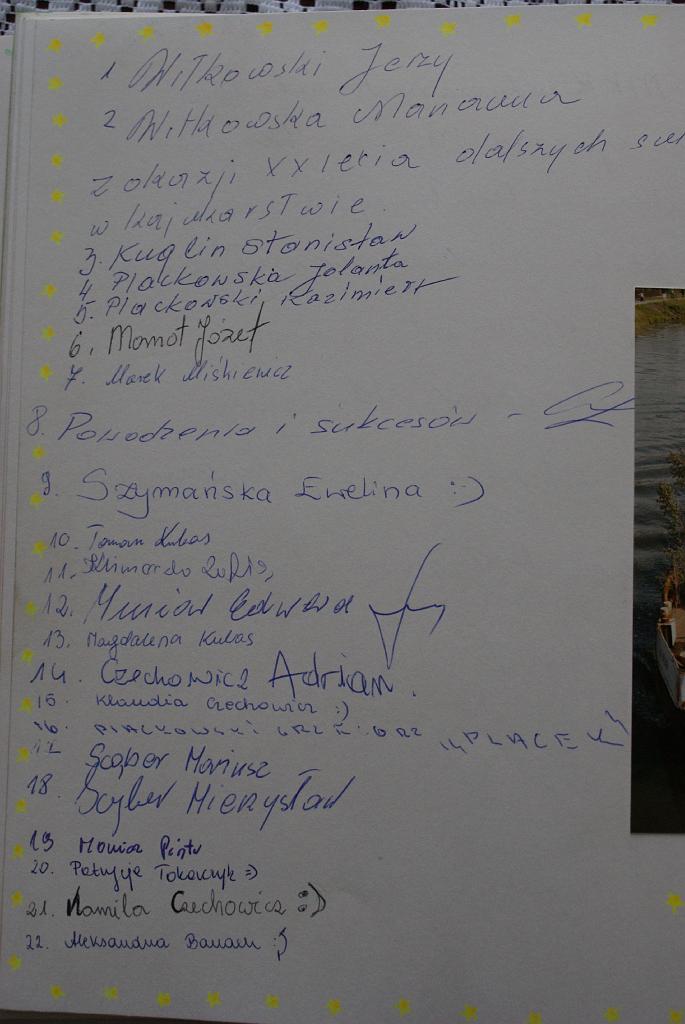 1 Witkowski Jerzy
2 Witkowska Marianna
z okazji XX lecia dalszych
w kajakarstwie
3. Kuglin Stanisław
4. Plackowska Jolanta
5. Plackowski Kazimierz
6. Momot Józef
7. Marek Miśkiewicz
8. Powodzenia i sukcesów -
9. Szymańska Ewelina :-)
10. Roman Kubas
11. Zofia
12. Edward
13. Magdalena Kubas
14. Czechowicz Adrian.
15. Klaudia Czechowicz :)
16. PLACKOWSKI GRZEGORZ „PLACEK"
17 Mariusz
18. Mieczysław
19 Piotr
20. Patrycja Tokarczyk =)
21. Kamila Czechowicz :D
22. Aleksandra :)